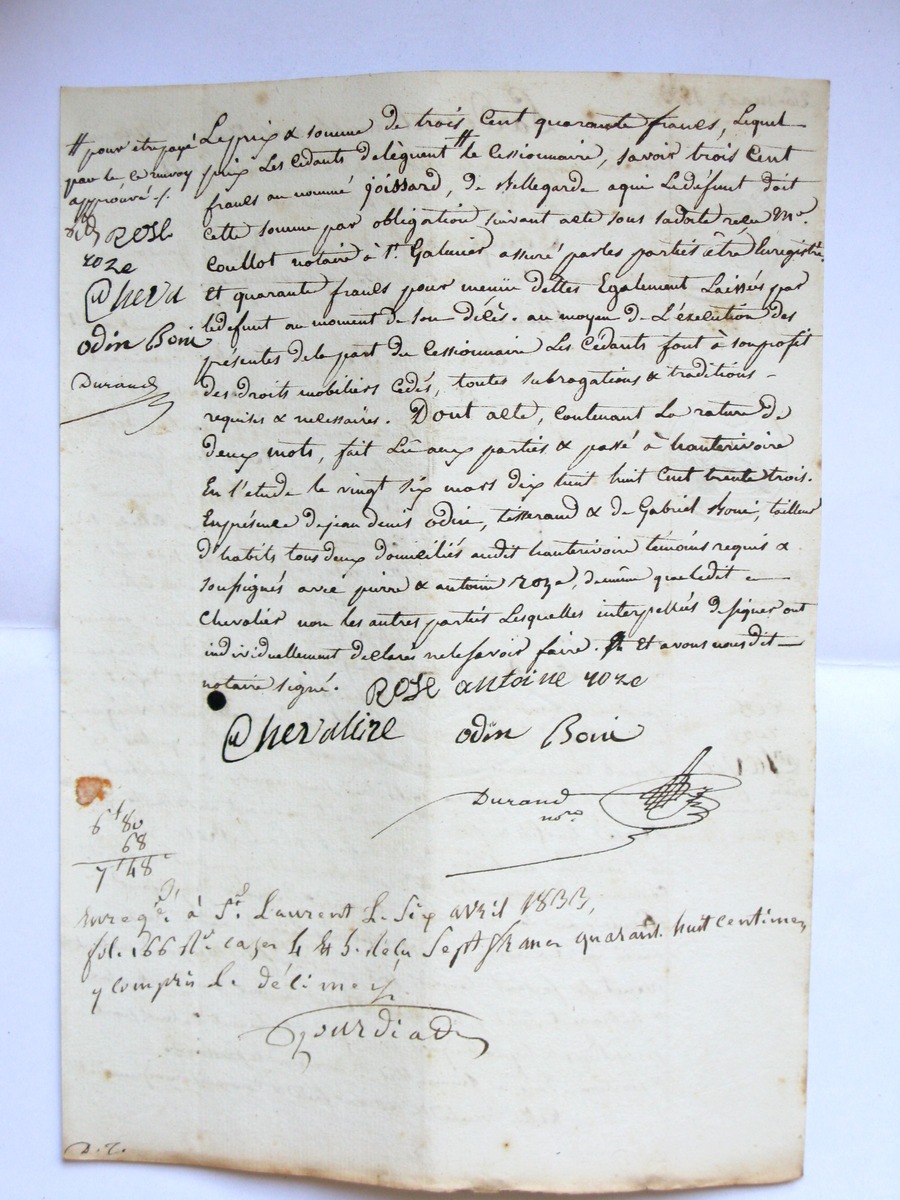 # pour etre payé
par le ce renvoy
approuvé /.
ROSE
roze
Cheva
odin Boni
Durand
Le prix & somme de trois Cent quarante francs, Lequel
prix Les Cédants delèguent # le Cessionnaire, savoir trois Cent
francs au nommé joissard, de Bellegarde a qui Ledéfunt doit
Cette somme par obligation suivant acte sous sa date reçu Me.
Coullot notaire à St. Galmier assuré par les parties être Enregistré,
Et quarante francs pour menüe dettes Egalement Laissés par
ledefunt au moment de son décès. au moyen de L'éxécution des
présentes de la part du Cessionnaire Les Cédants font à son profit
des droits mobiliers Cedés, toutes subrogations & traditions
requises & nécessaires. Dont acte, Contenant La rature de
deux mots, fait Lû aux parties & passé à hauterivoire
En l'etude le vingt six mars dix huit Cent trente trois.
En présence de jean denis odin, tisserand & de Gabriel Boni, tailleur
d'habits tous deux domiciliés audit hauterivoire témoins requis &
soussignés avec pierre & antoine roze, de même que ledit
Chevalier non les autres parties Lesquelles interpellés de signer ont
individuellement déclarés ne le savoir faire. Et avons nous dit
notaire signé. ROSE antoine roze
Chevallire odin Boni
Durand
nore
6f 80
68
7f 48c
Enregé. à St. Laurent Le Six avril 1833,
fol. 166 Ro. cases 4 et 5. Reçu Sept francs quarante huit Centimes
y compris Le décime
Gourdiad
D. T.